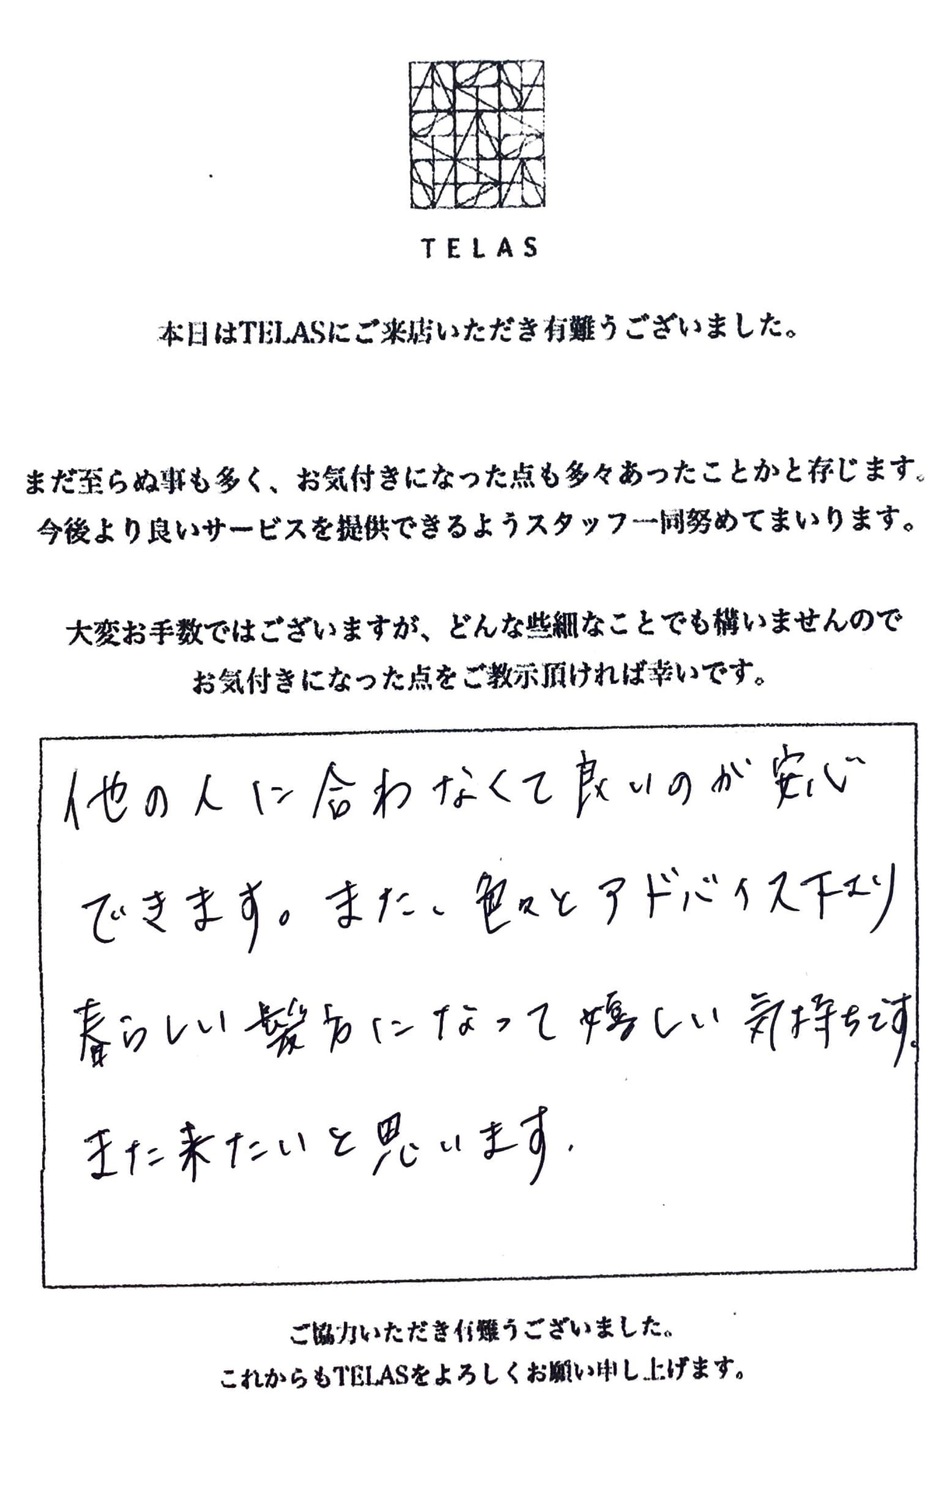 TELAS
本日はTELASにご来店いただき有難うございました。
まだ至らぬ事も多く、お気付きになった点も多々あったことかと存じます。
今後より良いサービスを提供できるようスタッフ一同努めてまいります。
大変お手数ではございますが、どんな些細なことでも構いませんので
お気付きになった点をご教示頂ければ幸いです。
他の人に合わなくて良いのが安心
できます。また、色々とアドバイス下さり
春らしい髪方になって嬉しい気持ちです。
また来たいと思います.
ご協力いただき有難うございました。
これからもTELASをよろしくお願い申し上げます。